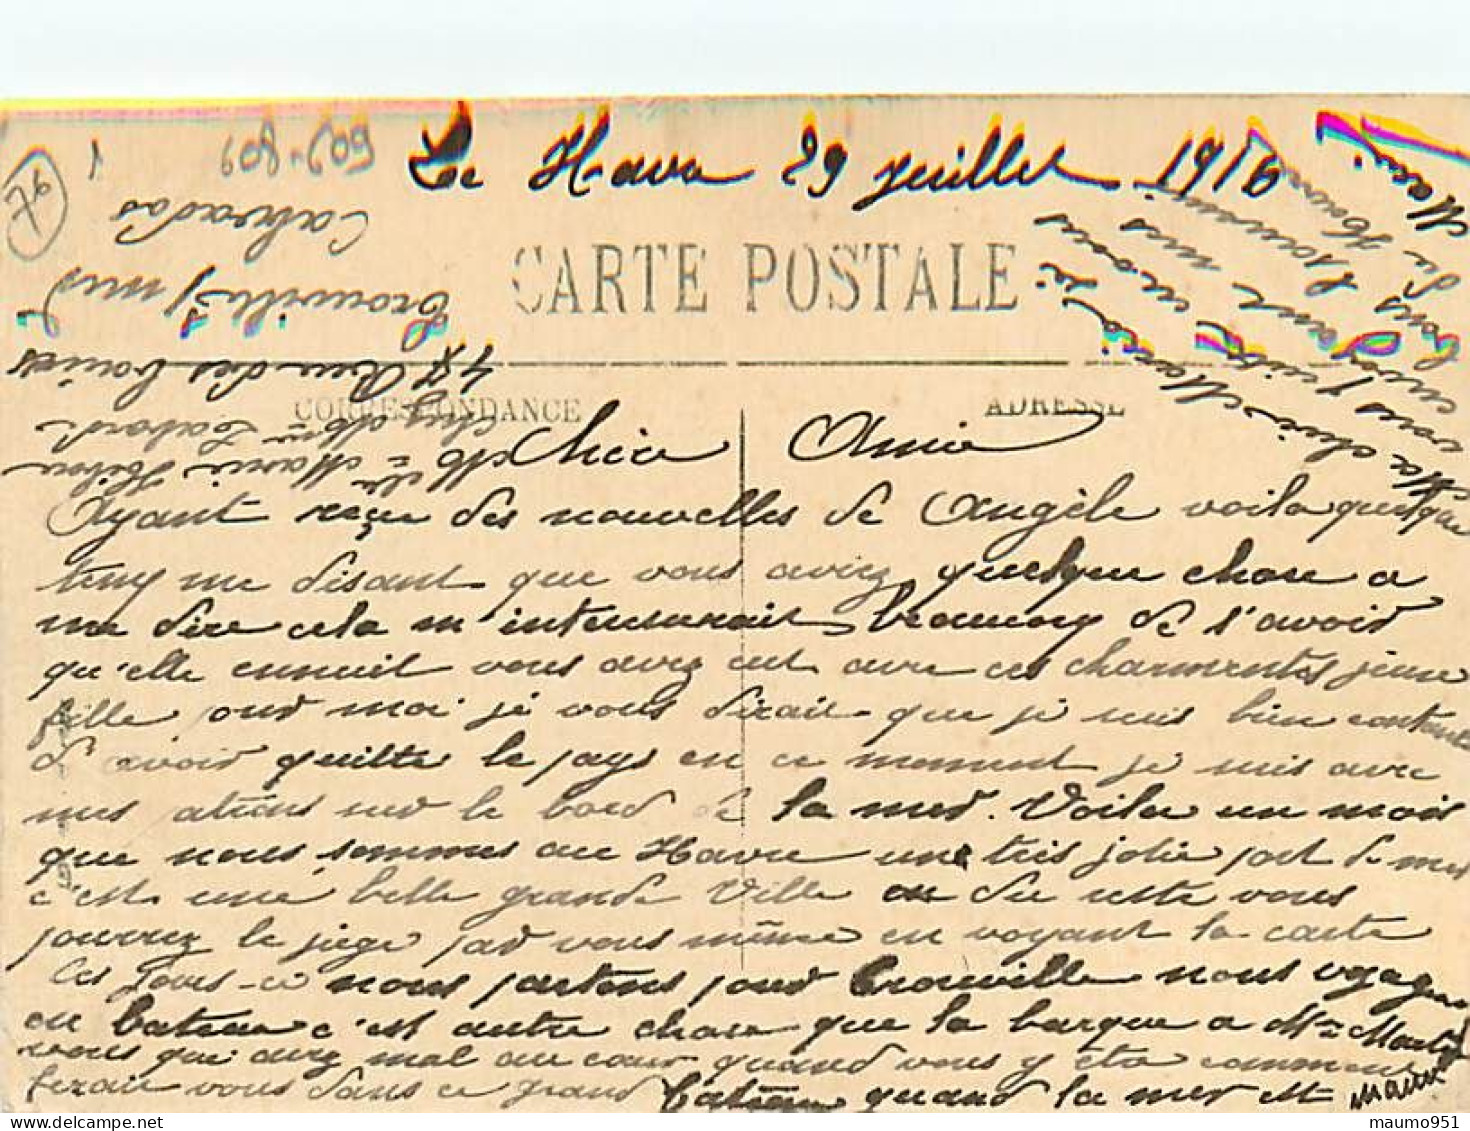 Le Havre 29 juillet 1916
CARTE POSTALE
CORRESPONDANCE
ADRESSE
Chère Amie
Ayant reçue des nouvelles de Angèle voila quelque
temp me disant que vous aviez quelque chose a
me dire cela m'interesserait beaucoup de s'avoir
qu'elle ennuit vous avez eut avec ces charmentes jeune
fille pour moi je vous dirait que je suis bien contente
d'avoir quitte le pays en ce moment je suis avec
mes patrons sur le bord de la mer. Voila un mois
que nous sommes au Havre une très jolie port de mer
c'est une belle grande Ville du reste vous
pourrez le juger par vous même en voyant la carte
Ces jours-ci nous partons pour Trouville nous voyageons
en bateau c'est autre chose que la barque a Mme
vous que avez mal au cœur quand vous y été comment
feraie vous dans ce grand bateau quand la mer et mauv
Ma chèr Marie
vous
Marie
Mlle Marie
chez Mme
47 Rue des
Trouville s/ mer
Calvados
609-809
76
1
maumo951